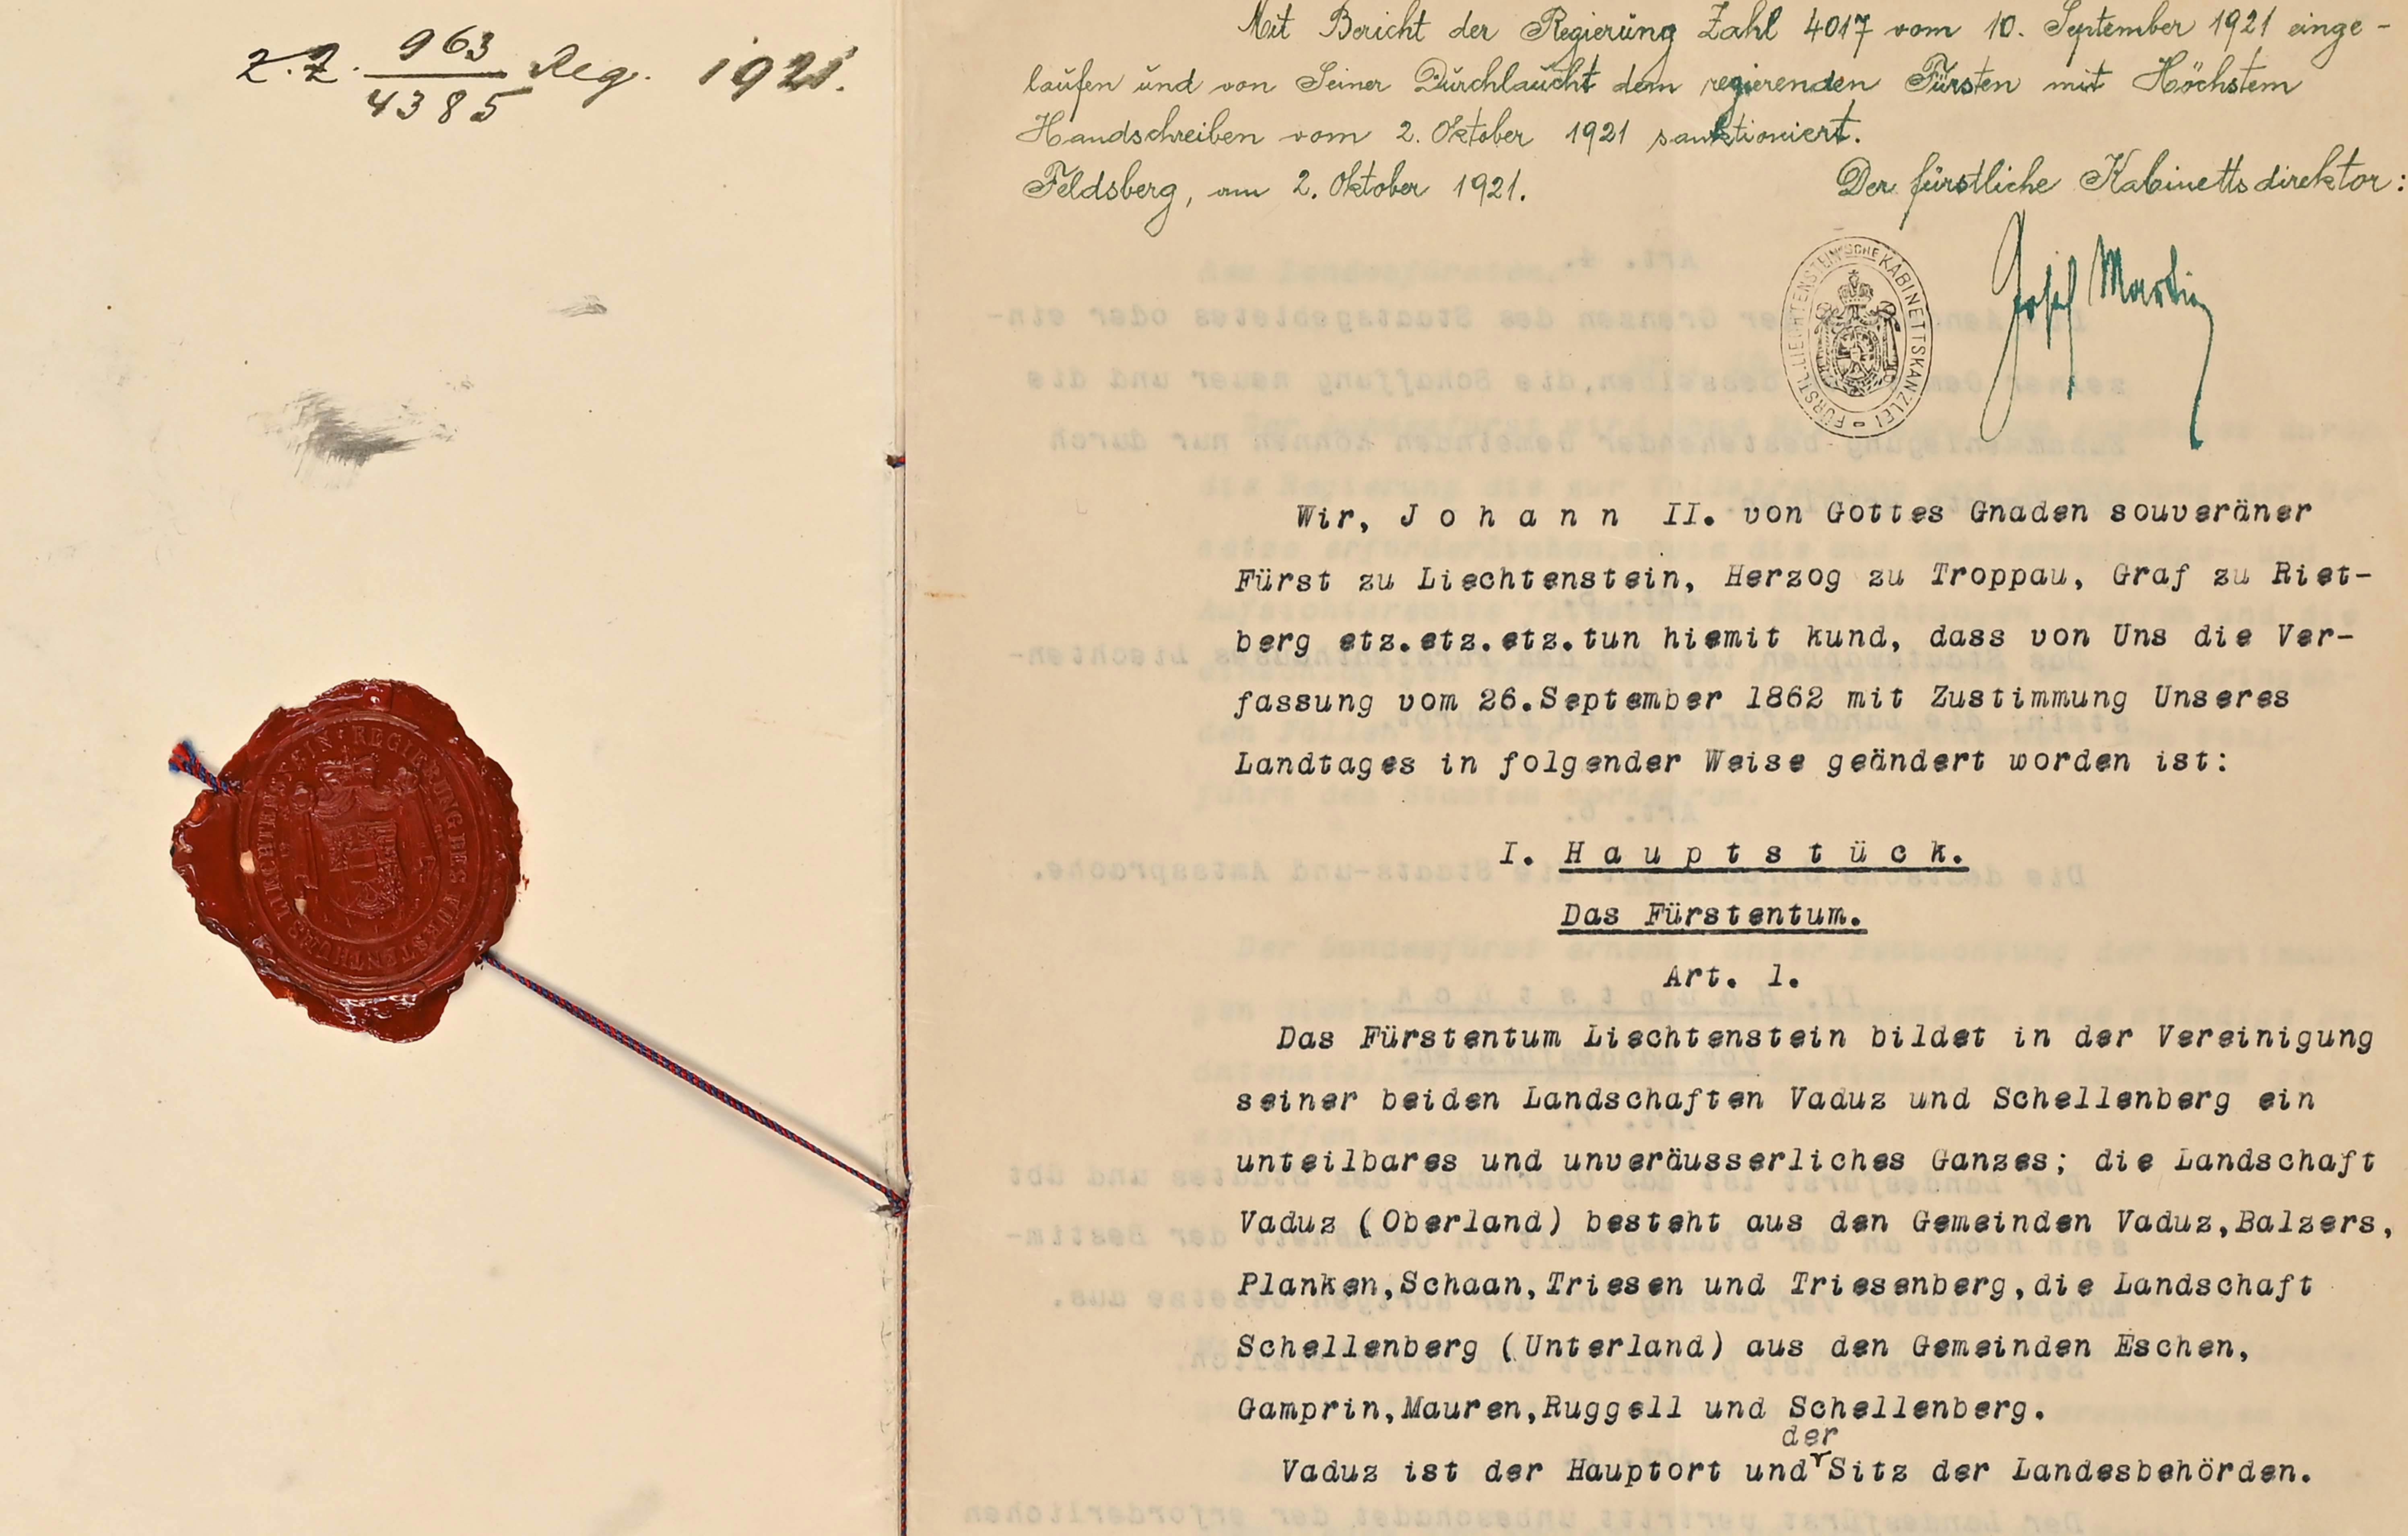 Z.Z. 963 Reg. 1921.
4385
Mit Bericht der Regierung Zahl 4017 vom 10. September 1921 einge-
laufen und von Seiner Durchlaucht dem regierenden Fürsten mit Höchstem
Handschreiben vom 2. Oktober 1921 sanktioniert.
Feldsberg, am 2. Oktober 1921.
Der fürstliche Kabinettsdirektor:
FÜRSTL. LIECHTENSTEIN'SCHE KABINETTSKANZLEI
Josef Martin
Wir, Johann II. von Gottes Gnaden souveräner
Fürst zu Liechtenstein, Herzog zu Troppau, Graf zu Riet-
berg etz.etz.etz.tun hiemit kund, dass von Uns die Ver-
fassung vom 26.September 1862 mit Zustimmung Unseres
Landtages in folgender Weise geändert worden ist:
I. Hauptstück.
Das Fürstentum.
Art. 1.
Das Fürstentum Liechtenstein bildet in der Vereinigung
seiner beiden Landschaften Vaduz und Schellenberg ein
unteilbares und unveräusserliches Ganzes; die Landschaft
Vaduz (Oberland) besteht aus den Gemeinden Vaduz,Balzers,
Planken,Schaan,Triesen und Triesenberg,die Landschaft
Schellenberg (Unterland) aus den Gemeinden Eschen,
Gamprin,Mauren,Ruggell und Schellenberg.
der
Vaduz ist der Hauptort und Sitz der Landesbehörden.
REGIERUNG DES FÜRSTENTHUMS LIECHTENSTEIN